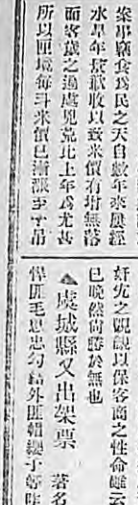 案串竊食爲民之天自數年來屢經
水旱年景歉收以致米價有增無落
而客歲之遍處兇荒比上年爲尤甚
所以匪境每斗米價已漸漲至十吊
奸宄之覬覦以保客商之性命雖云
已晚然尚勝於無也
▲虞城縣又出架票 著名
悍匪毛思忠勾結外匪帽纓子等昨